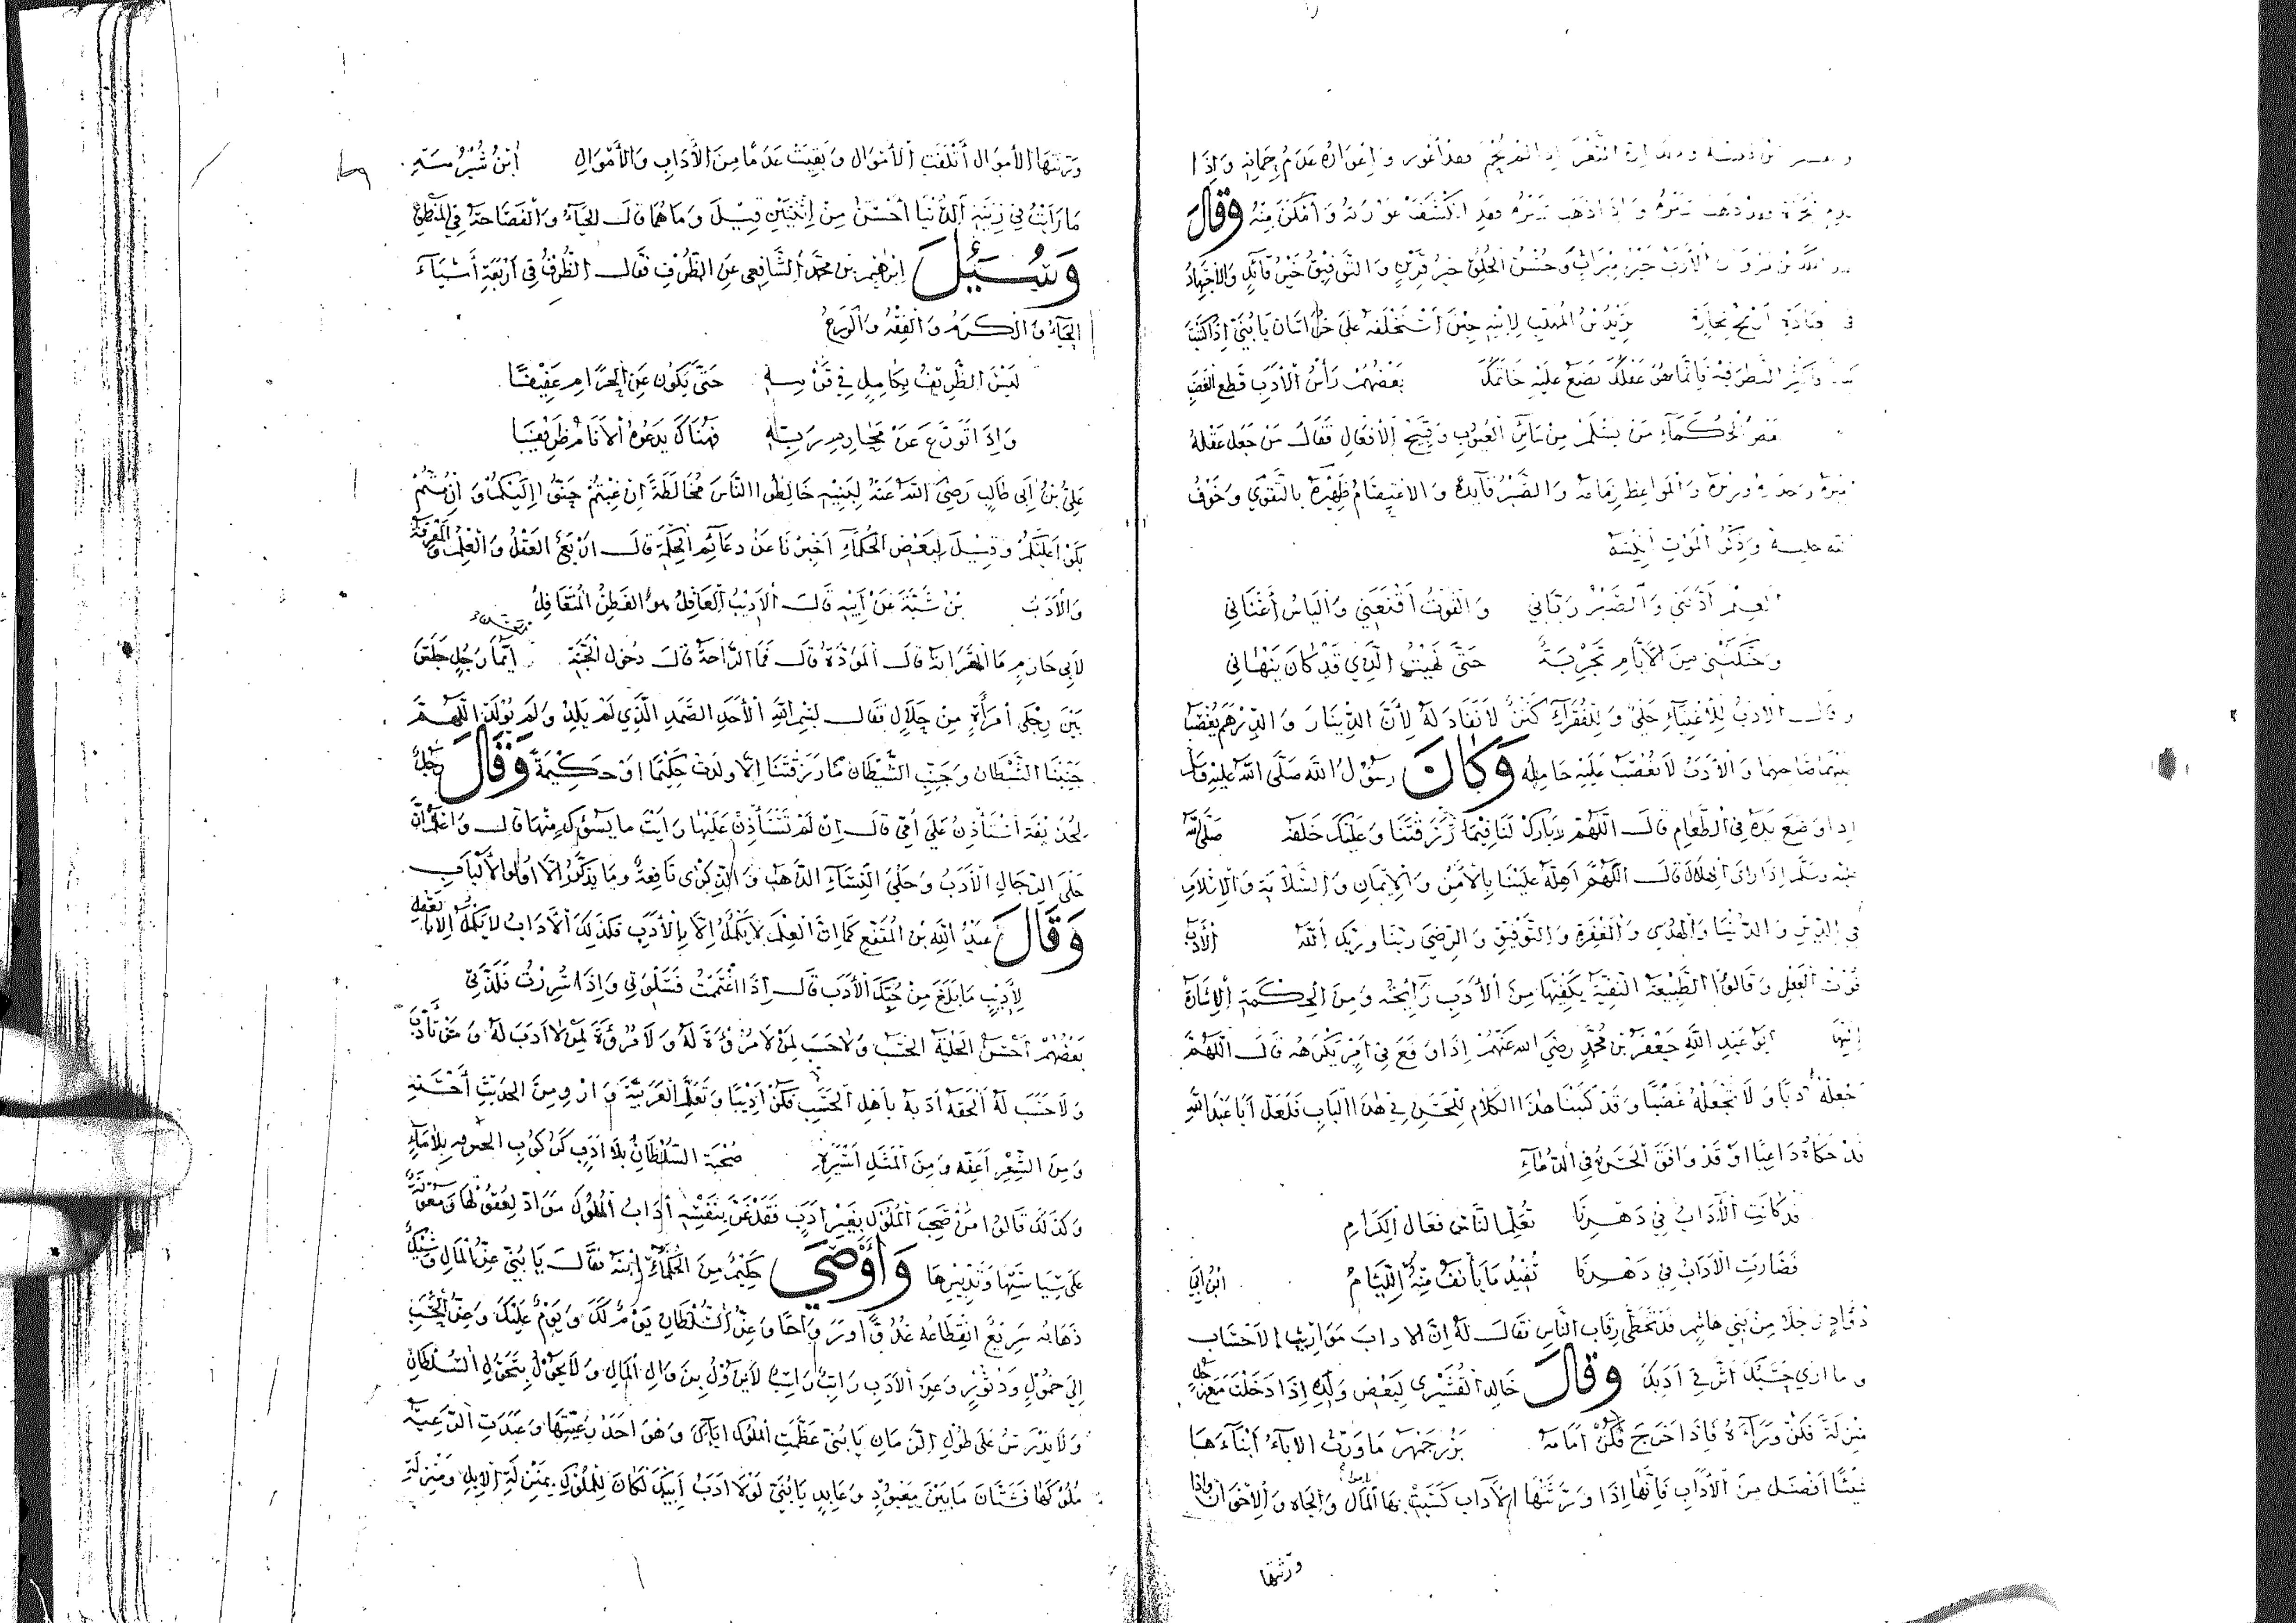 إن الثغر إذا لم يحم فقد أغور وإعواره عدم حماته وإذا
ذهب ستره وإذا ذهب ستره فقد انكشفت عورته وأمكن منه وقال
الأدب خير ميراث وحسن الخلق خير قرين والتوفيق خير قائد والاجتهاد
أربح تجارة يزيد بن المهلب لابنه حين استخلفه على خراسان يا بني إذا كتبت
فأكثر النظر فيه فإنما هو عقلك تضع عليه خاتمك بعضهم رأس الأدب قطع الغضب
الحكماء من يسلم من سائر العيوب وقبيح الأفعال فقال من جعل عقله
والمواعظ زمامه والصبر قائده والاعتصام ظهيره بالتقوى وخوف
وذكر الموت أنيسه
العلم أدبني والصبر رباني والقوت أقنعني واليأس أغناني
وحنكتني من الأيام تجربة حتى نهيت الذي قد كان ينهاني
وقال الأدب للأغنياء حلي وللفقراء كنز لا نفاد له لأن الدينار والدرهم يغصب
عليهما صاحبهما والأدب لا يغصب عليه حامله وكان رسول الله صلى الله عليه
إذا وضع يده في الطعام قال اللهم بارك لنا فيما رزقتنا وعليك خلفه صلى الله
عليه وسلم إذا رأى الهلال قال اللهم أهله علينا بالأمن والإيمان والسلامة والإسلام
في الدين والدنيا والهدى والمغفرة والتوفيق والرضى ربنا وربك الله الأدب
قوت العقل وقالوا الطبيعة النقية يكفيها من الأدب رائحته ومن الحكمة الإشارة
إليها أبو عبد الله جعفر بن محمد رضي الله عنهم إذا وقع في أمر يكرهه قال اللهم
اجعله أدبا ولا تجعله غضبا وقد كتبنا هذا الكلام للحسن في هذا الباب فلعل أبا عبد الله
قد حكاه داعيا أو قد وافق الحسن في الدعاء
قد كانت الآداب في دهرنا تعلم الناس فعال الكرام
فصارت الآداب في دهرنا تفيد ما يأنف منه اللئام ابن أبي
دؤاد رجلا من بني هاشم قد تخطى رقاب الناس فقال له إن الاداب مواريث الأحساب
وما أرى حسبك أثر في أدبك وقال خالد القشيري لبعض ولده إذا دخلت مع رجل
منزلة فكن وراءه فإذا خرج فكن أمامه بزرجمهر ما ورثت الاباء أبناءها
شيئا أفضل من الآداب فإنها إذا ورثتها الآداب كسبت بها المال والجاه والإخوان وإذا
ورثتها
ورثتها الأموال أتلفت الأموال وبقيت عدما من الآداب والأموال ابن شبرمة
ما رأيت في زينة الدنيا أحسن من اثنتين قيل وما هما قال الحياء والفصاحة في المنطق
وسئل إبراهيم بن محمد الشافعي عن الظرف فقال الظرف في أربعة أشياء
الحياء والكرم والفقه والورع
ليس الظريف بكامل في قسمه حتى يكون عن الحرام عفيفا
وإذا تورع عن محارم ربه فهناك يدعوه الأنام ظريفا
علي بن أبي طالب رضي الله عنه لبنيه خالطوا الناس مخالطة إن غبتم حنوا إليكم وإن متم
بكوا عليكم وقيل لبعض الحكماء أخبرنا عن دعائم الحكمة قال أربع العقل والعلم والمعرفة
والأدب بن شبة عن أبيه قال الأديب العاقل هو الفطن المتغافل
لأبي حازم ما القرابة قال المودة قال فما الراحة قال دخول الجنة أيما رجل جلس
بين رجلي امرأة من حلال فقال بسم الله الأحد الصمد الذي لم يلد ولم يولد اللهم
جنبنا الشيطان وجنب الشيطان ما رزقتنا إلا ولدت حليما أو حكيمة وقال رجل
لحذيفة أستأذن على أمي قال إن لم تستأذن عليها رأيت ما يسوءك منها قال واعلم أن
حلى الرجال الأدب وحلى النساء الذهب والذكرى نافعة وما يذكر إلا أولوا الألباب
وقال عبد الله بن المقفع كما أن العلم لا يكمل إلا بالأدب فكذلك الآداب لا تكمل إلا بالعقل
لأديب ما بلغ من حبك الأدب قال إذا اغتممت فسلوتي وإذا سررت فلذتي
بعضهم أحسن الحلية الحسب ولا حسب لمن لا مروءة له ولا مروءة لمن لا أدب له ومن تأدب
ولا حسب له ألحقه أدبه بأهل الحسب فكن أديبا وتعلم العربية وارو من الحديث أحسنه
ومن الشعر أعفه ومن المثل أسيره صحبة السلطان بلا أدب كركوب البحر بلا ماء
وكذلك قالوا من صحب الملوك بغير أدب فقد غرر بنفسه آداب الملوك مواد لعقولها ومعونة
على سياستها وتدبيرها وأوصى حكيم من الحكماء ابنه فقال يا بني عز المال وشيك
ذهابه سريع انقطاعه غدوا ورواحا وعز السلطان يوم لك ويوم عليك وعز الحسب
إلى خمول ودثور وعز الأدب راتب راتب لا يزول بزوال المال ولا يحول بتحول السلطان
ولا يدرس على طول الزمان يا بني عظمت الملوك أباك وهو أحد رعيتها وعبدت الرعية
ملوكها فشتان ما بين معبود وعابد يا بني لولا أدب أبيك لكان للملوك بمنزلة الإبل ومنزلة